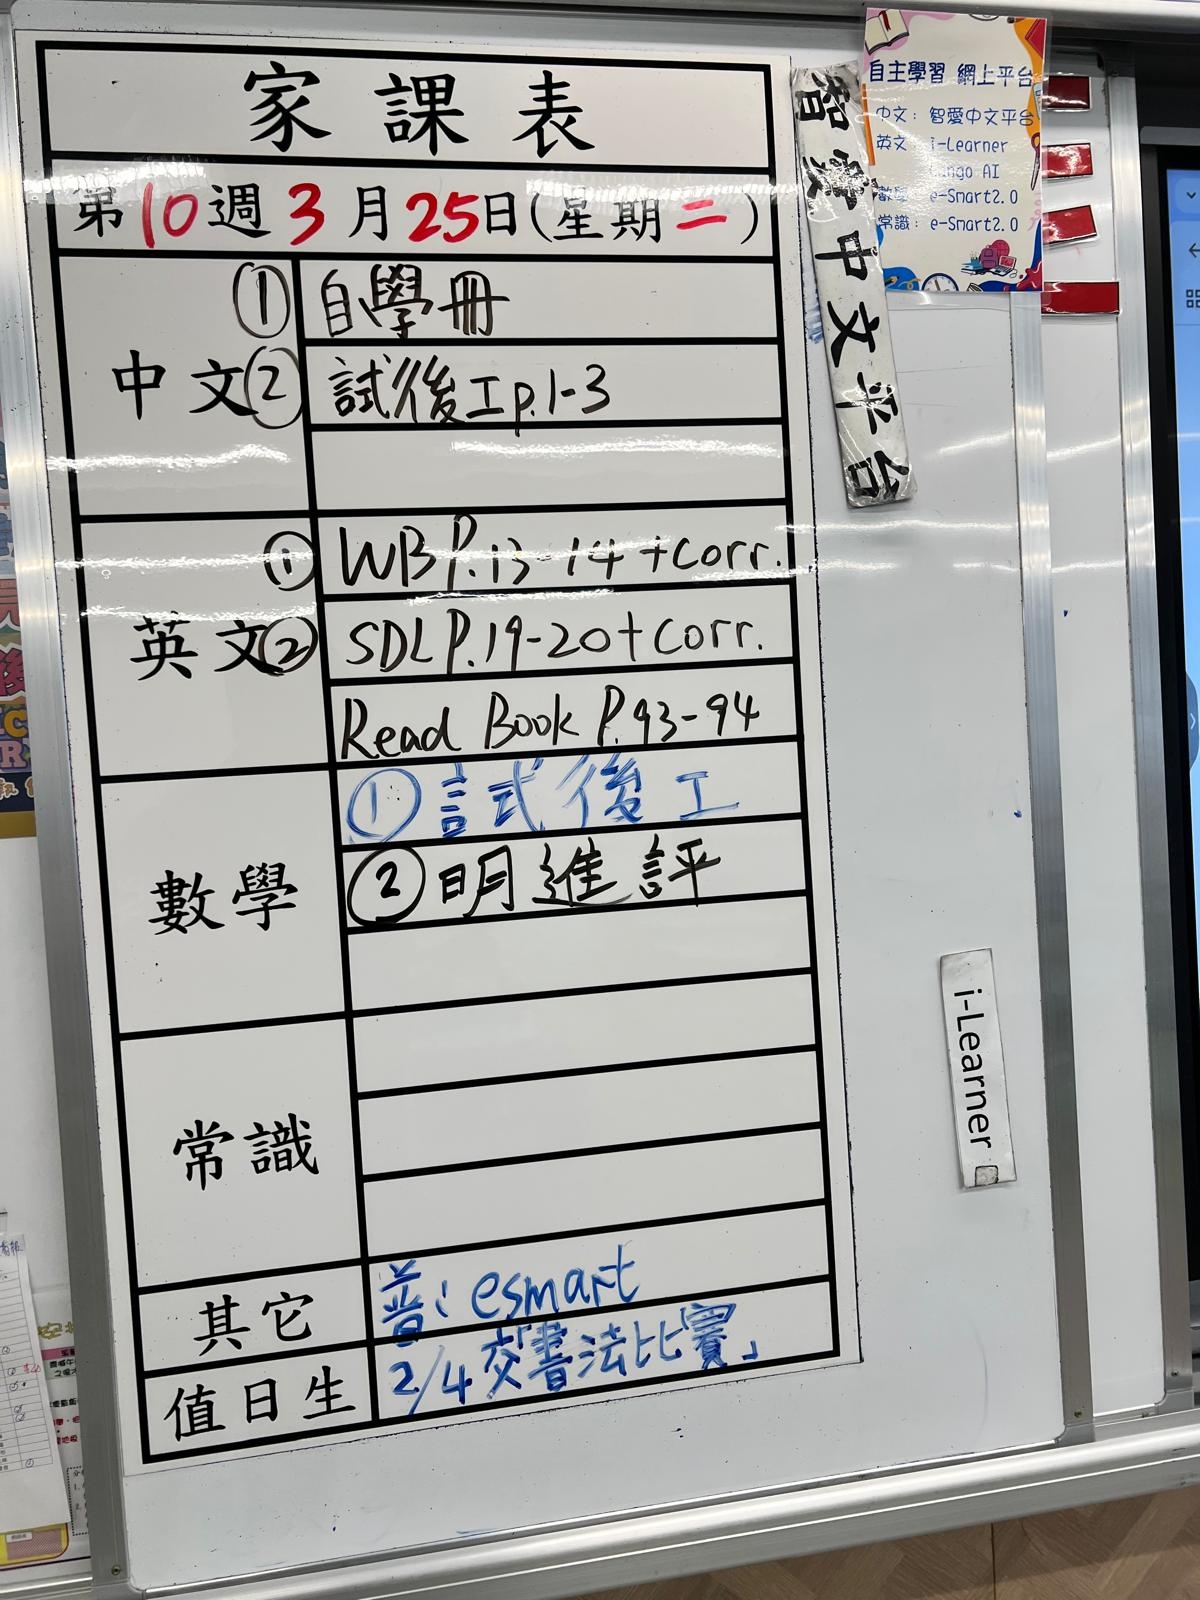 家課表
第10週3月25日(星期二)
中文
① 自學冊
② 試後工p.1-3
英文
① WB P.13-14+corr.
② SDL P.19-20+corr.
Read Book P.93-94
數學
①試後工
②明進評
常識
其它
普:esmart
值日生
2/4交「書法比賽」
智愛中文平台
自主學習 網上平台
中文:智愛中文平台
英文 i-Learner
AI
數學 e-Smart2.0
常識:e-Smart2.0
i-Learner